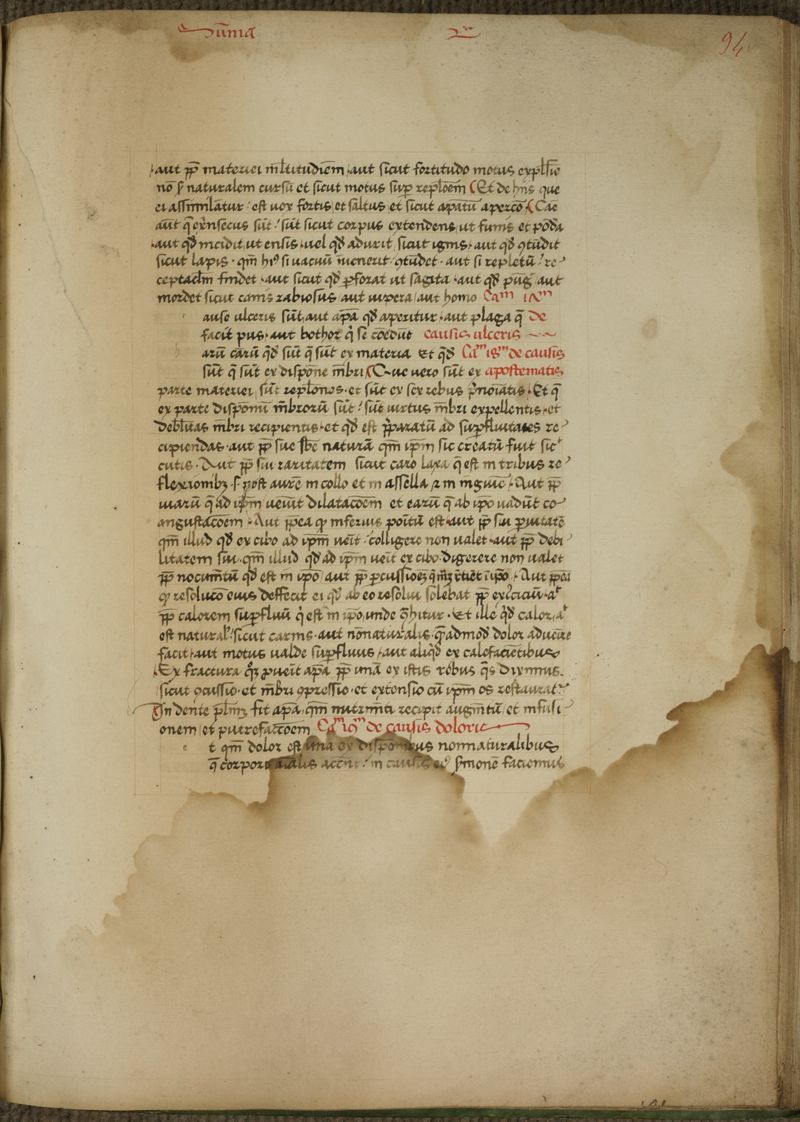 Sūma
94
aut ꝓp̄ materiei m̄ltitudiem aut sicut fortitudo motus
nō s naturalem cursū et sicut motus suꝑ replōem Et de his que
ei assimilātur est uox fortis et saltus et sicut apatū aperco Cāe
aūt q̄ ext̄nsecus sūt sūt sicut corpus extendens ut funis et pōda
aut qd̄ incidit ut ensis uel qd̄ adurit sicut ignis aut qd̄ ꝯtūdit
sicut lapis qm̄ si uacuū inuenerit ꝯtūdet aut si repletū re
ceptaclm findet aut sicut qd̄ ꝑforat ut sagita aut qd̄ pūg aut
mordet sicut canis rabiosus aut uipera aut homo Caᵐ
ause ulceris sūt aut apā qd̄ aperitur aut plaga q̄ De
facit pus aut bothor q̄ se coedūt causis ulceris
arū carū qd̄ sūt q̄ sūt ex materia et qd̄ Caᵐ de causis
sūt q̄ sūt ex dispōne mb̄ri Que uero sūt ex apostematis
parte materiei sūt replōnes et sūt ex sex rebus p̄noiatis Et q̄
ex parte dispōnū mb̄rorū sūt sūt uirtus mb̄ri expellentis et
debl̄itas mb̄ri recipientis et qd̄ est p̄paratū ad suꝑfluitates re
cipiendas aut ꝓp̄ sue sb̄e naturā qm̄ ip̄m sic creatū fuit sic
cutis Aut ꝓp̄ sui raritatem sicut caro laxa q̄ est in tribus re
flexionibꝫ post aurē in collo et in assella in inguine Aut ꝓp̄
uiarū q̄ ad ip̄m ueiūt dilatacōem et earū q̄ ab ipō uadūt co
angustacōem Aut ꝓpea qꝛ inferius poitū est aut ꝓp̄ sui ꝑuitatē
qm̄ illud qd̄ ex cibo ad ip̄m ueit colligere non ualet aut ꝓp̄ debi
litatem sui qm̄ illud qd̄ ad ip̄m ueit ex cibo digerere non ualet
ꝓp̄ nocumtū qd̄ est in ipō aut ꝓp̄ ꝑcussioeꝫ Aut ꝓpea
qꝛ resolucō eius deffecit ei qd̄ ab eo resolui solebat ꝓp̄ ex̄citiū aᵗ
ꝓp̄ calorem suꝑfluū q̄ est in ipō unde Et ille qd̄ calor aᵗ
est naturaľ sicut carnis aut nōnaturalis quēadmod dolor aduēire
facit aut motus ualde suꝑfluus aut aliqd̄ ex calefacietibus
Ex fractura qꝫ ꝓueit apā ꝓp̄ unā ex istis rebus q̄s diximus
sicut ꝯcussio et mb̄ri oppressio et extensio cū ip̄m os restaurat
In dente fit apā qm̄ nutrimti recipit augmtū et infusi
onem et putrefactōem Caᵐ de causis doloris
t qm̄ dolor est una ex dispōnibus nonnaturalibus
q̄ corpori accn̄t in causis sermonē faciemus